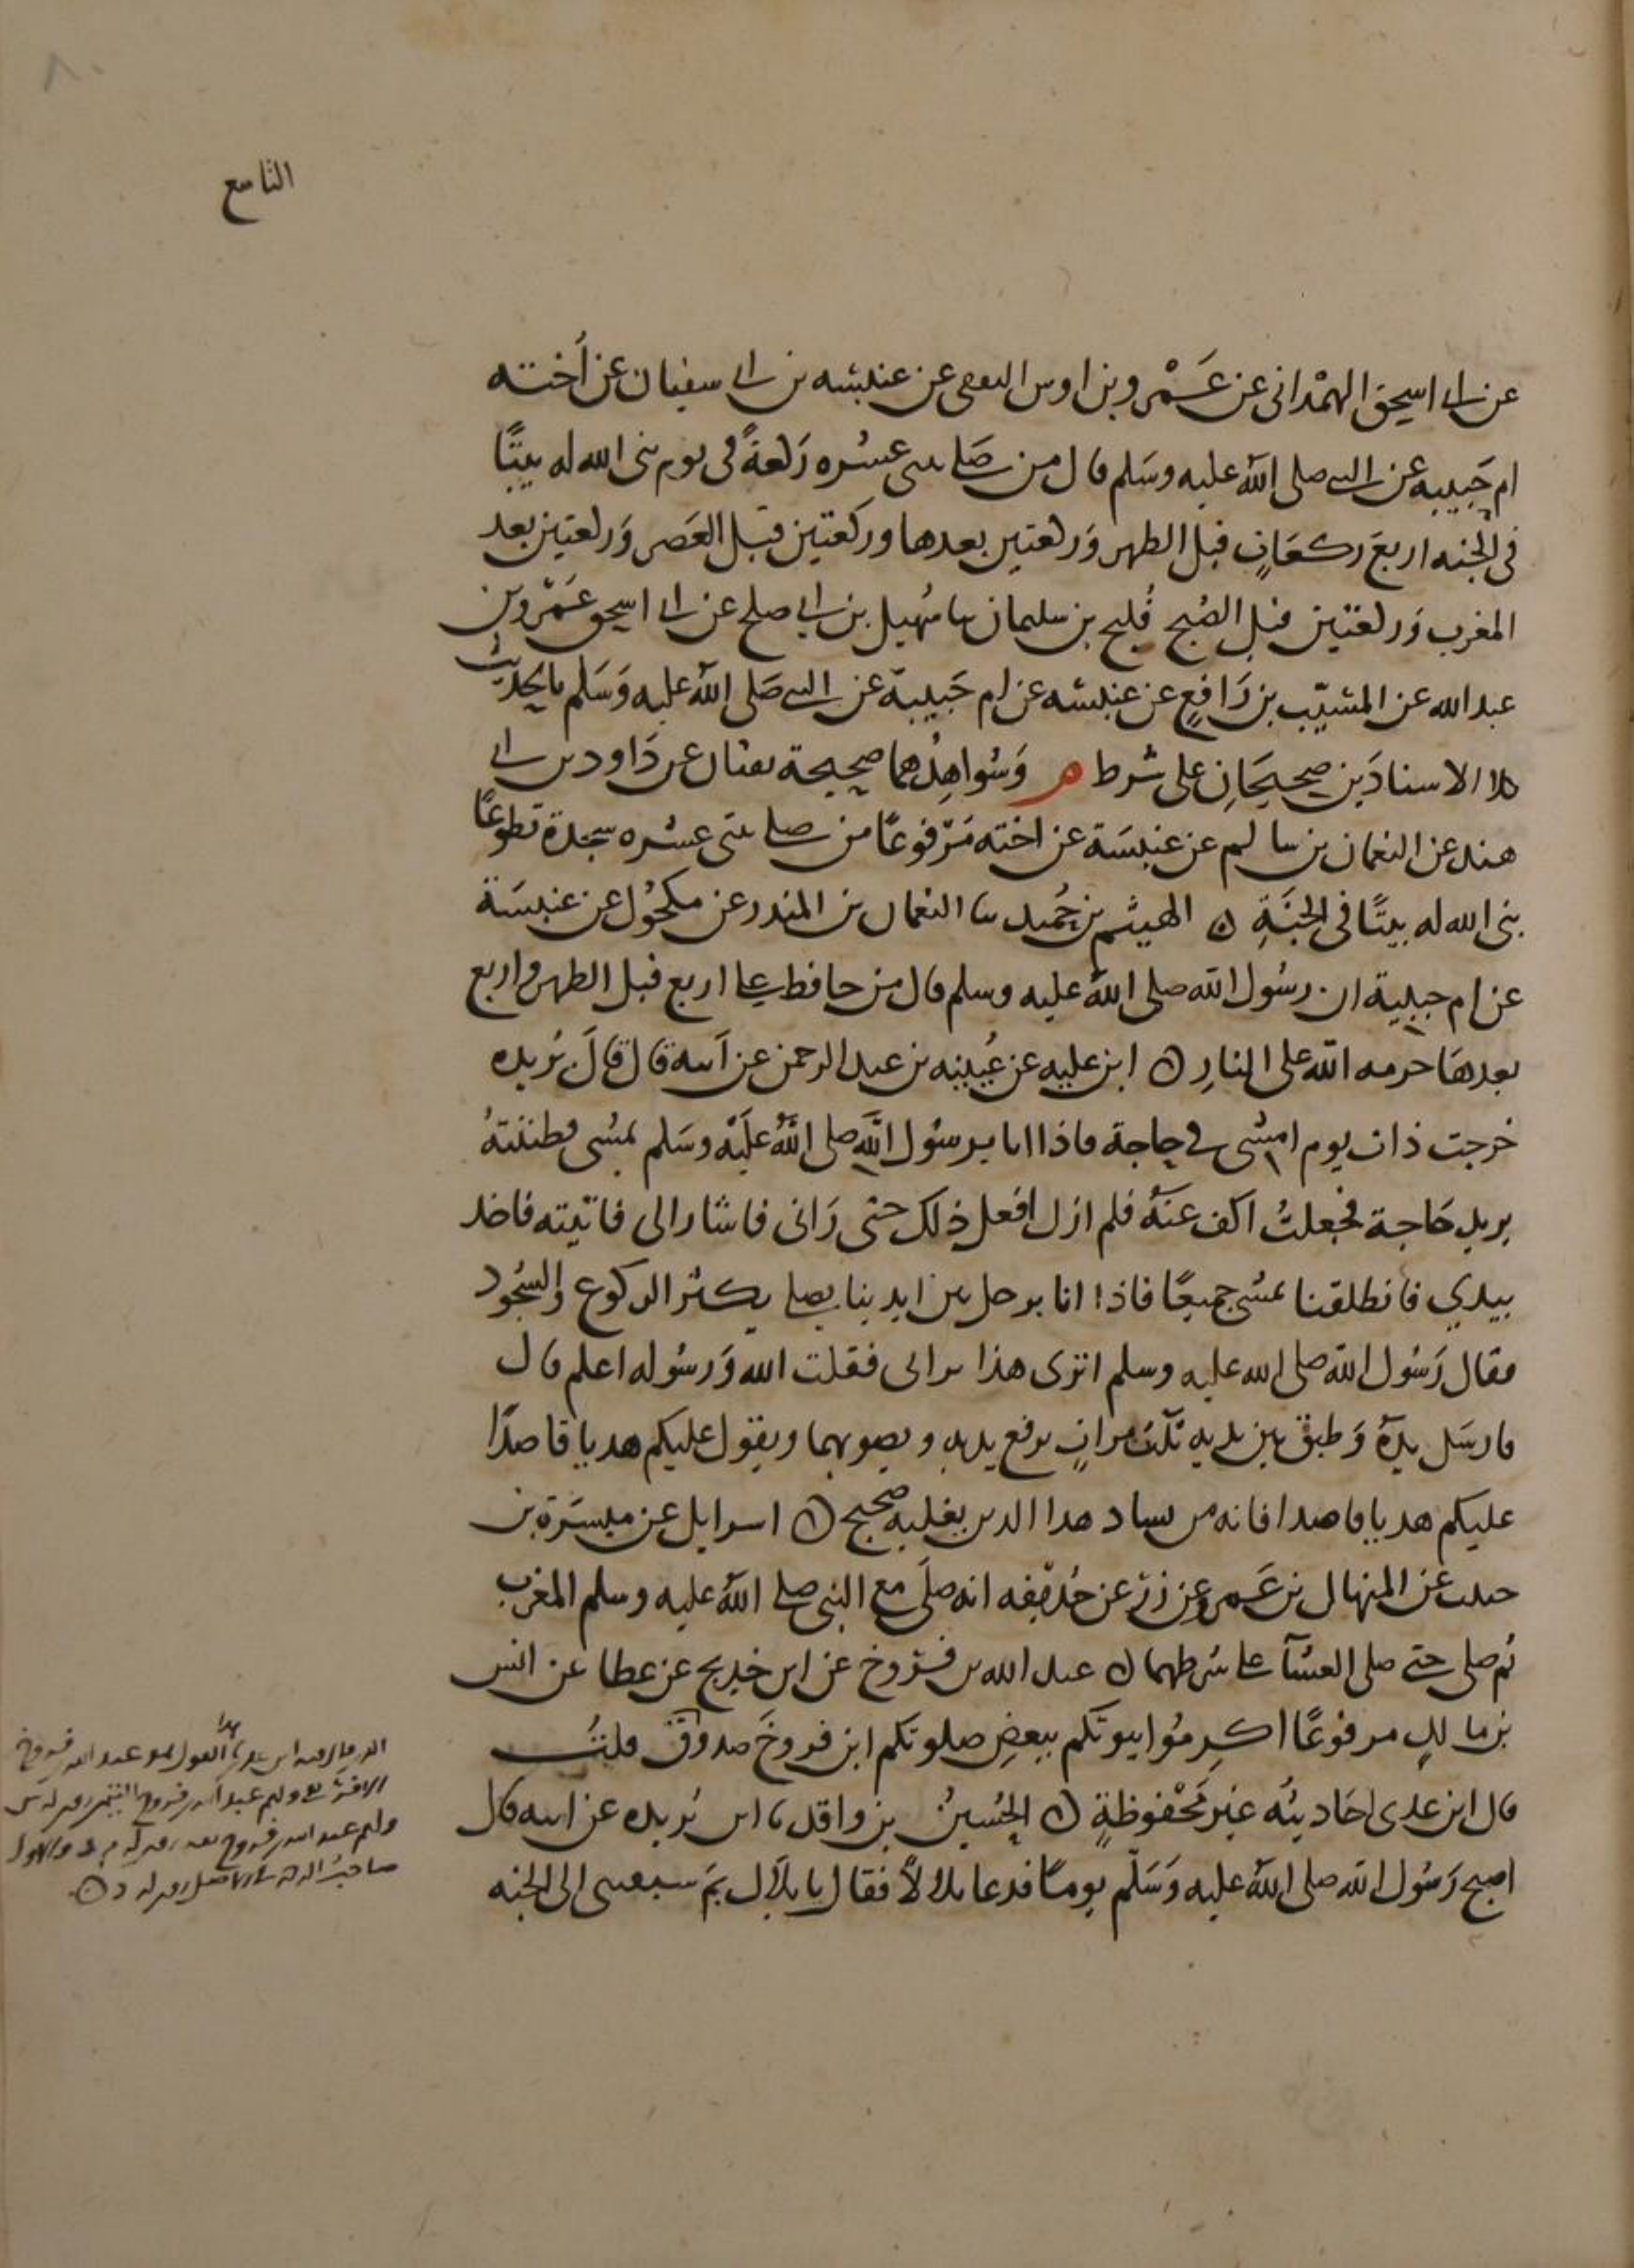 ٨٠
التاسع
عن ابى اسحق الهمدانى عن عَمْرو بن اوس الثقفى عن عنبسه بن ابى سفيان عن أخته
ام حَبيبه عن النبى صلى الله عليه وسَلم قال من صَلى ثنتى عشره رَكعةً فى يوم بنى الله له بيتًا
فى الجنه اربعَ ركعَاتٍ قبل الظهر وَركعتين بعدها وركعتين قبل العَصر وَركعتين بعد
المغرب وَركعتين قبل الصُبح فُليح بن سليمان ثنا سُهيل بن ابى صلح عن ابى اسحق عَمْرو بن
عبد الله عن المسَيّب بن رَافعٍ عن عنبسه عن ام حَبيبة عن النبى صَلى الله عليه وَسَلم بالحديث
كلا الاسنادَين صحيحَانِ على شرط م وَشواهِدُهما صحيحة بشار عن دَاود بن ابى
هند عن النعمان بن سالم عن عنبسَة عن اخته مَرفوعًا من صلى ثنتى عشره سجدة تطوعًا
بنى الله له بيتًا فى الجنَةِ ه الهيثم بن حُميد ثنا النعمان بن المنذر عن مكحُول عن عنبسَة
عن ام حبيبة ان رسُول الله صلى اللهُ عليه وسلم قال من حافظ على اربع قبل الظهر واربع
بعدهَا حرمه الله على النارِ ه ابن عليه عن عُيينه بن عبد الرحمن عن اَبيه قال قالَ بُريده
خرجت ذات يوم امشى فى حاجة فاذا انا برسُول الله صلى اللهُ عليْه وسَلم يمشى فظننتهُ
يريد حَاجة فجعلتُ اكف عنهُ فلم ازل افعل ذلك حتى رَانى فاشار الى فاتيته فاخذ
بيدي فانطلقنا نمشى جميعًا فاذا انا برجل بين ايدينا يصلى يكثر الركوع والسُجود
فقال رَسُول الله صلى الله عليه وسلم اترى هذا يرائى فقلت الله وَرسُوله اعلم قال
فارسَل يدهُ وَطبق بين يديه ثلث مراتٍ يرفع يديه ويصوبهما ويقول عليكم هديا قاصدًا
عليكم هديا قاصدا فانه من يشاد هذا الدين يغلبه صحيح ه اسرايل عن ميسَرَة بن
حبيب عن المنهال بن عَمرو عن زر عن حُذيفه انه صلَى مع النبى صلى اللهُ عليه وسلم المغرب
ثم صلى حتى صلى العشآ على شرطهما ه عبد الله بن فروخ عن ابن جريج عن عطا عن انس
بن مالكٍ مرفوعًا اكرِمُوا بيوتكم ببعضِ صلوتكم ابن فروخَ صدوق قلتُ
قال ابن عدى احَاديثُه غير مَحْفوظةٍ ه الحُسينُ بن واقد ثنا ابن بُريده عن ابيه قال
اصبح رَسُول الله صلى اللهُ عليه وَسَلّم يومًا فدعا بلالاً فقال يا بلال بمَ سبقتنى الى الجنه
الذى قال فيه ابن عدى هذا القول هو عبد الله بن فروخ
ولهم عبد الله بن فروخ
ولهم عبد الله بن فروخ والاول